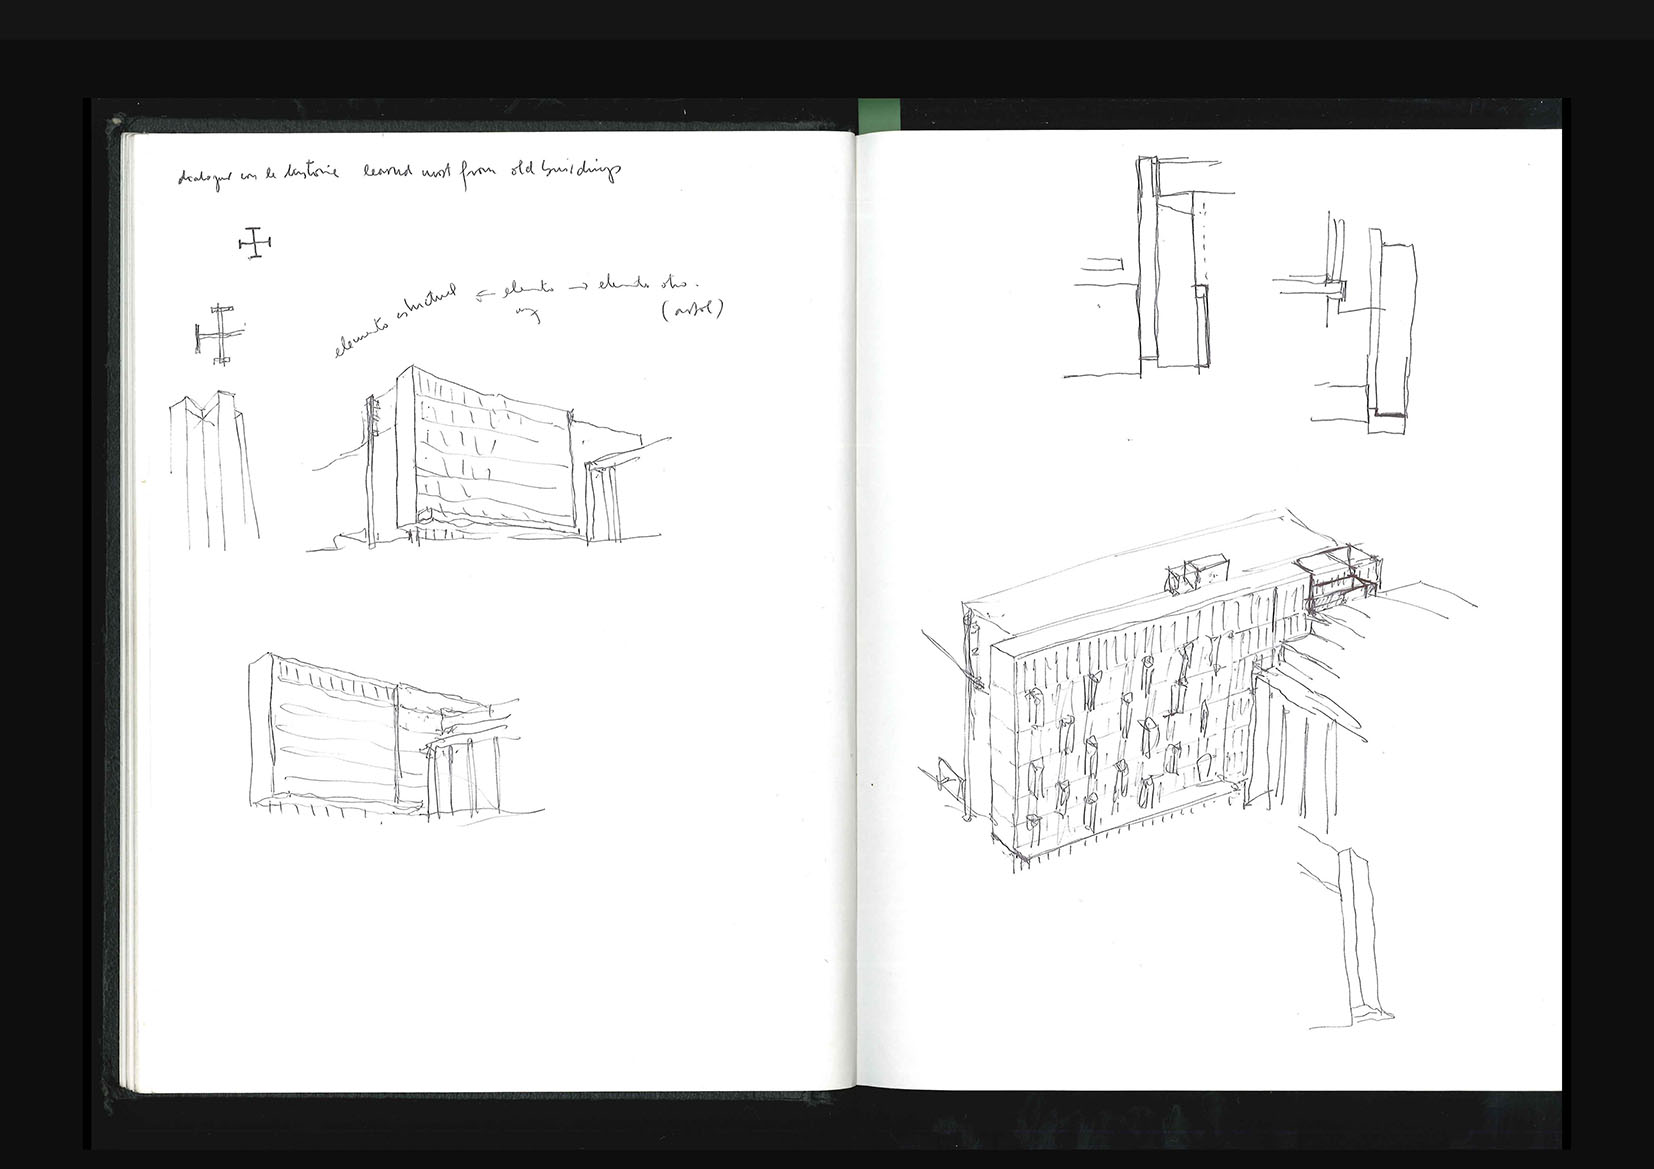 dialogue con le histoire learned most from old buildings
elemento estructural ← elemento → elemento otro.
(arbol)